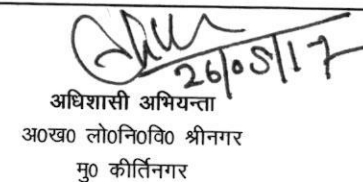 26/05/17
अधिशासी अभियन्ता
अ०ख० लो०नि०वि० श्रीनगर
मु० कीर्तिनगर